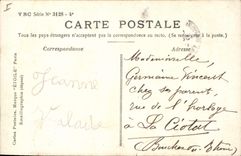 V BC Série Nº 3128 - 4º
CARTE POSTALE
Tous les pays étrangers n'acceptent pas la correspondance au recto. (Se renseigner à la poste).
Correspondance
Adresse
Mademoiselle
Germaine Vincent
chez ses parents
rue de l'horloge
à La Ciotat
Bouches du Rhône
Jeanne
Cartes Postales, Marque "ETOILE" Paris